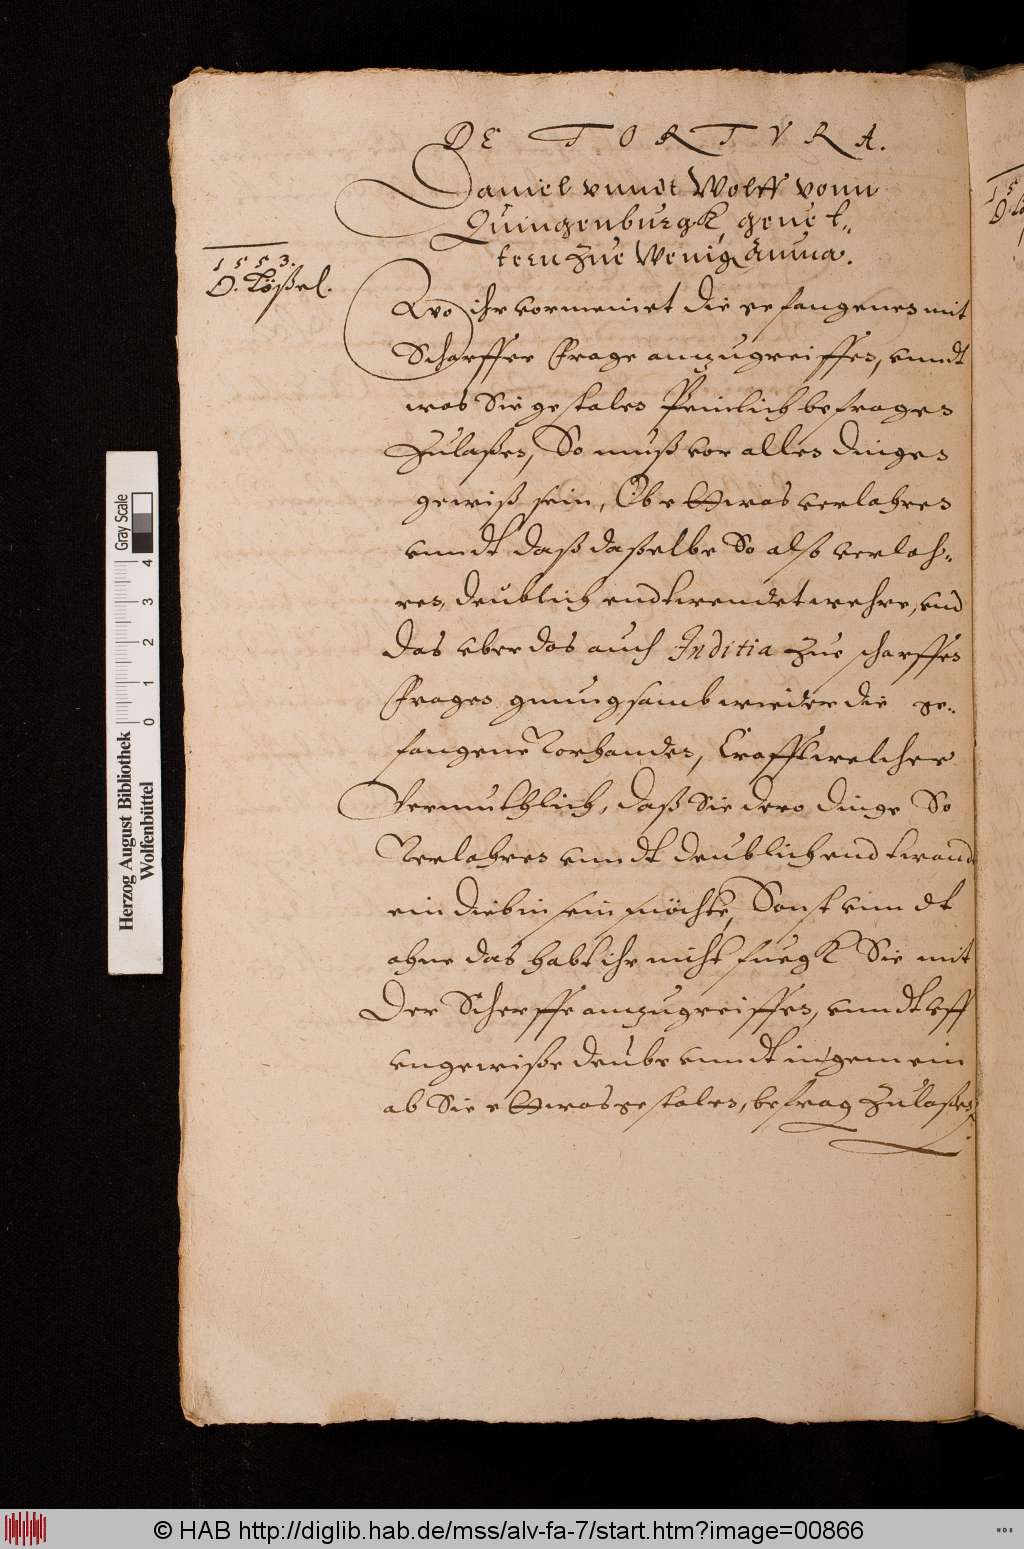 DE TORTVRA.
Daniel vnndt Wolff vonn
Quingenburgk, genet-
tern zue Wenig Anma.
1553.
D. Lößel.
Wo ihr vormeinet die gefangenen mit
Scharffer Frage anzugreiffen, vnndt
was Sie gestolen Peinlich befragen
Zulaßen, So muß vor allen dingen
gewiß sein, Ob ettwas verlohren
vnndt daß daßelbe So also verloh-
ren, deublich endtwendet wehre, vnd
das vber das auch Inditia zue scharffen
Fragen gnungsamb wieder die ge-
fangene Vorhanden, Crafft welcher
Vermuthlich, daß Sie dero dinge So
Verlohren vnndt deublich endtwandt
ein diebin sein möchte, Sonst vnndt
ohne das habt ihr nicht fuegk Sie mit
Der Scherffe anzugreiffen, vnndt vff
vngewiße deube vnndt in gemein
ab Sie ettwas gestolen, befrag Zulaßen.
Herzog August Bibliothek
Wolfenbüttel
Gray Scale
0 1 2 3 4
© HAB http://diglib.hab.de/mss/alv-fa-7/start.htm?image=00866